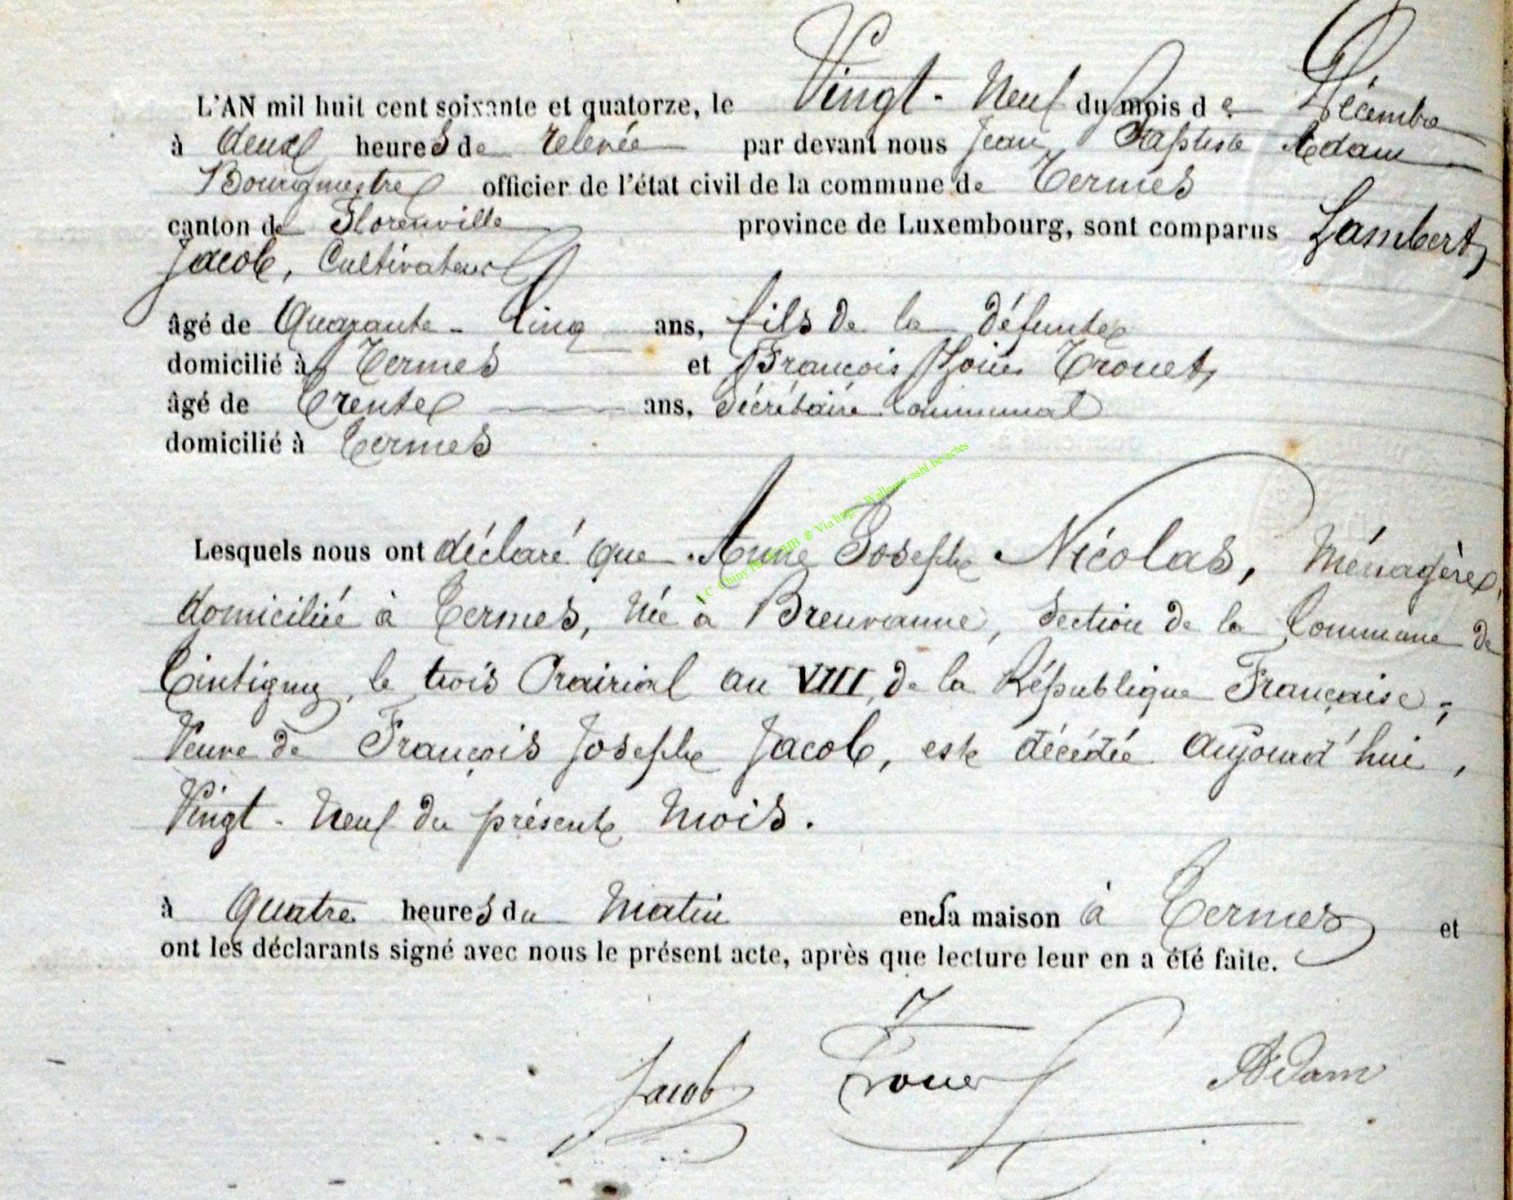 L'AN mil huit cent soixante et quatorze, le Vingt-Neuf du mois de Décembre
à deux heures de relevée par devant nous Jean Baptiste Adam
Bourgmestre officier de l'état civil de la commune de Termes
canton de Florenville province de Luxembourg, sont comparus Lambert
Jacob, Cultivateur
âgé de Quarante-Cinq ans, fils de la défunte
domicilié à Termes et François Louis Trouet,
âgé de Trente ans, Sécrétaire Communal
domicilié à Termes
Lesquels nous ont déclaré que Anne Josephe Nicolas, Ménagère,
domiciliée à Termes, née à Breuvanne, Section de la Commune de
Tintigny, le trois Prairial an VIII, de la République Française,
Veuve de François Joseph Jacob, est décédée aujourd'hui,
Vingt-Neuf du présent mois.
à quatre heures du matin en sa maison à Termes et
ont les déclarants signé avec nous le présent acte, après que lecture leur en a été faite.
Jacob Trouet Adam